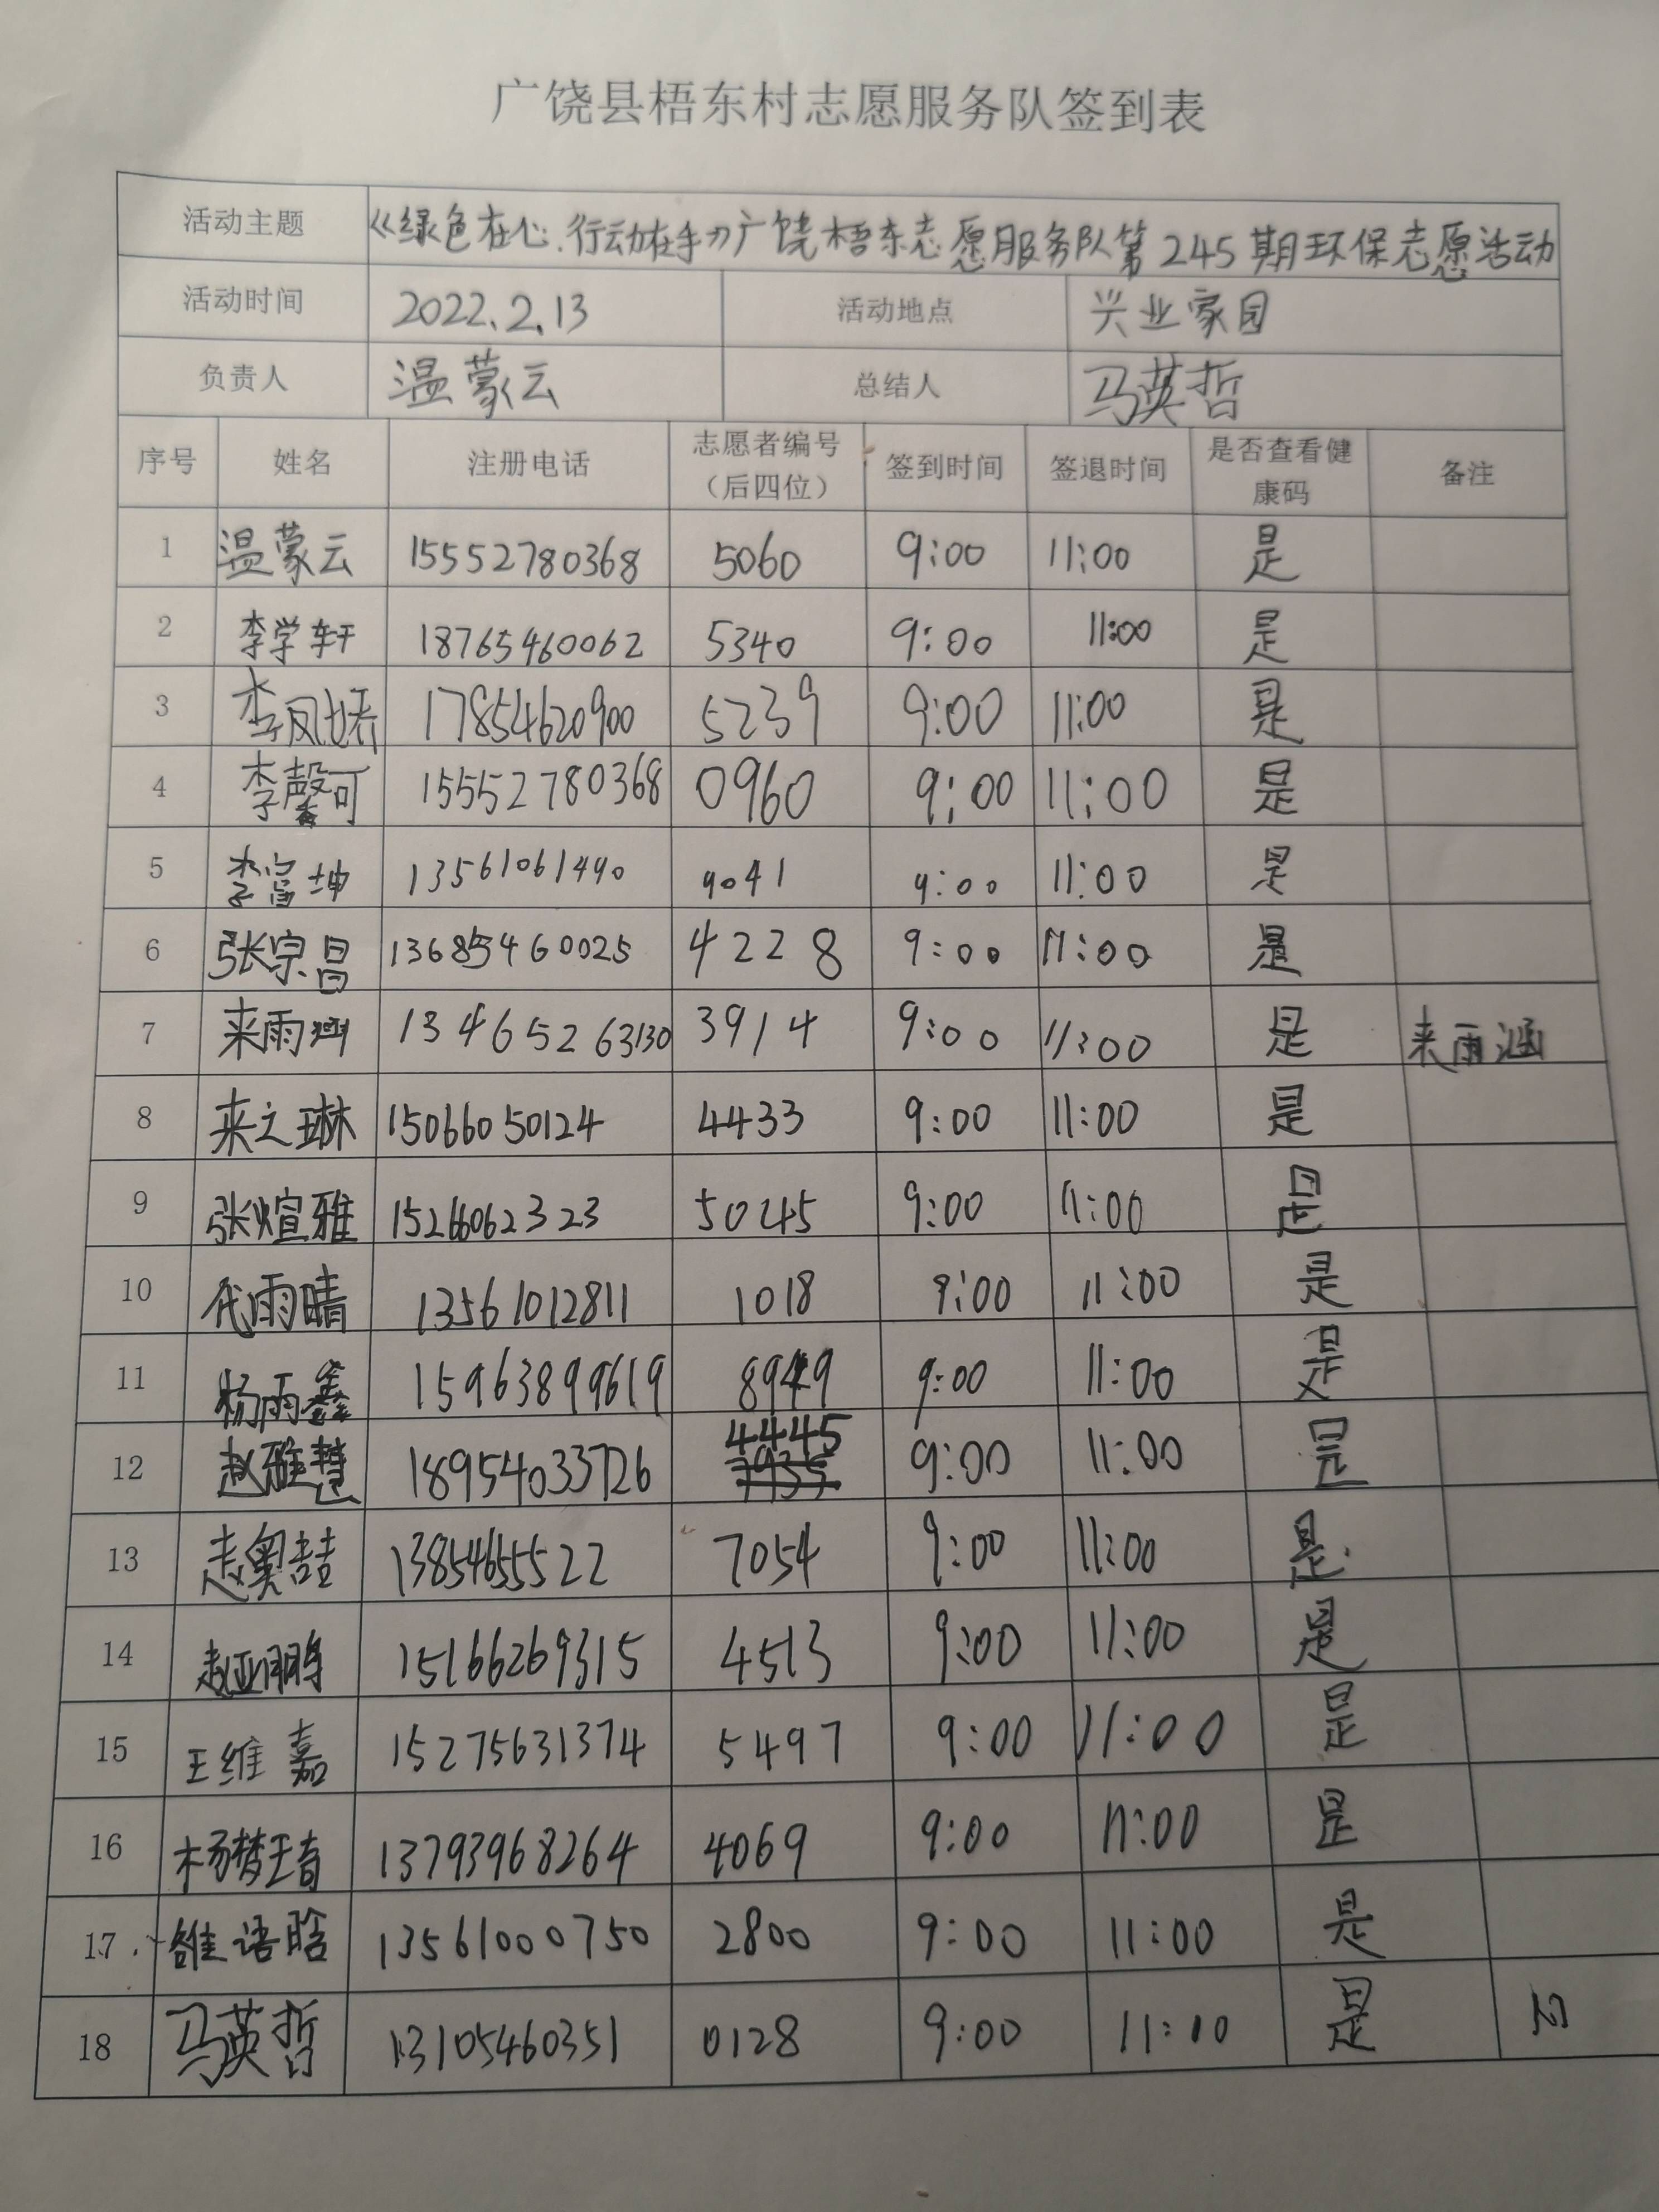 广饶县梧东村志愿服务队签到表
活动主题 《绿色在心.行动在手》广饶梧东志愿服务队第245期环保志愿活动
活动时间 2022.2.13 活动地点 兴业家园
负责人 温蒙云 总结人 马英哲
序号 姓名 注册电话 志愿者编号（后四位） 签到时间 签退时间 是否查看健康码 备注
1 温蒙云 15552780368 5060 9:00 11:00 是
2 李学轩 18765460062 5340 9:00 11:00 是
3 李凤娇 17854620900 5239 9:00 11:00 是
4 李馨可 15552780368 0960 9:00 11:00 是
5 李富坤 13561061490 9041 9:00 11:00 是
6 张宗昌 13685460025 4228 9:00 11:00 是
7 来雨涵 13465263130 3914 9:00 11:00 是 来雨涵
8 来之琳 15066050124 4433 9:00 11:00 是
9 张煊雅 15266062323 5045 9:00 11:00 是
10 代雨晴 13561012811 1018 9:00 11:00 是
11 杨雨鑫 15963899619 8949 9:00 11:00 是
12 赵雅慧 18954033726 4445 9:00 11:00 是
13 赵奥喆 13854655522 7054 9:00 11:00 是
14 赵亚鹏 15166269315 4513 9:00 11:00 是
15 王维嘉 15275631374 5497 9:00 11:00 是
16 杨梦琦 13793968264 4069 9:00 11:00 是
17 雒语晗 13561000750 2800 9:00 11:00 是
18 马英哲 13105460351 0128 9:00 11:10 是